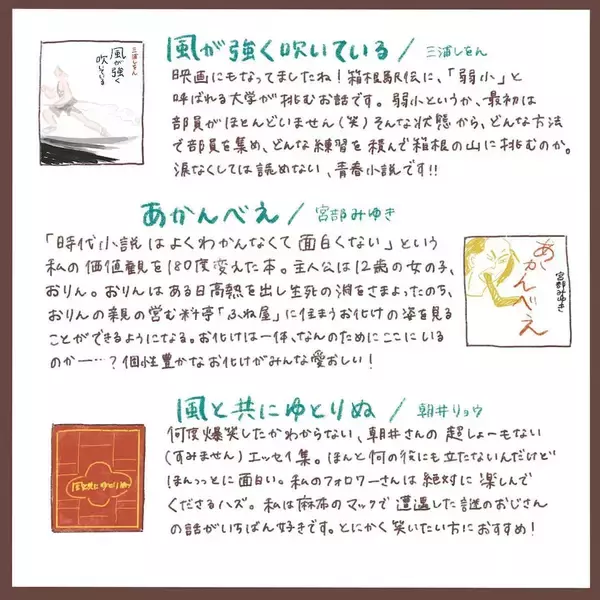 風が強く吹いている / 三浦しをん
三浦しをん
風が強く
吹いている
映画にもなってましたね！箱根駅伝に、「弱小」と
呼ばれる大学が挑むお話です。弱小というか、最初は
部員がほとんどいません(笑)そんな状態から、どんな方法
で部員を集め、どんな練習を積んで箱根の山に挑むのか。
涙なくしては読めない、青春小説です!!
あかんべえ / 宮部みゆき
「時代小説はよくわかんなくて面白くない」という
私の価値観を180度変えた本。主人公は12歳の女の子、
おりん。おりんはある日高熱を出し生死の淵をさまよったのち、
おりんの親の営む料亭「ふね屋」に住まうお化けの姿を見る
ことができるようになる。お化けは一体、なんのためにここにいる
のか…？個性豊かなお化けがみんな愛おしい！
あかんべえ
宮部みゆき
風と共にゆとりぬ / 朝井リョウ
風と共にゆとりぬ
何度爆笑したかわからない、朝井さんの超しょーもない
(すみません)エッセイ集。ほんと何の役にも立たないんだけど
ほんっっとに面白い。私のフォロワーさんは絶対に楽しんで
くださるハズ。私は麻布のマックで遭遇した謎のおじさん
の話がいちばん好きです。とにかく笑いたい方におすすめ！